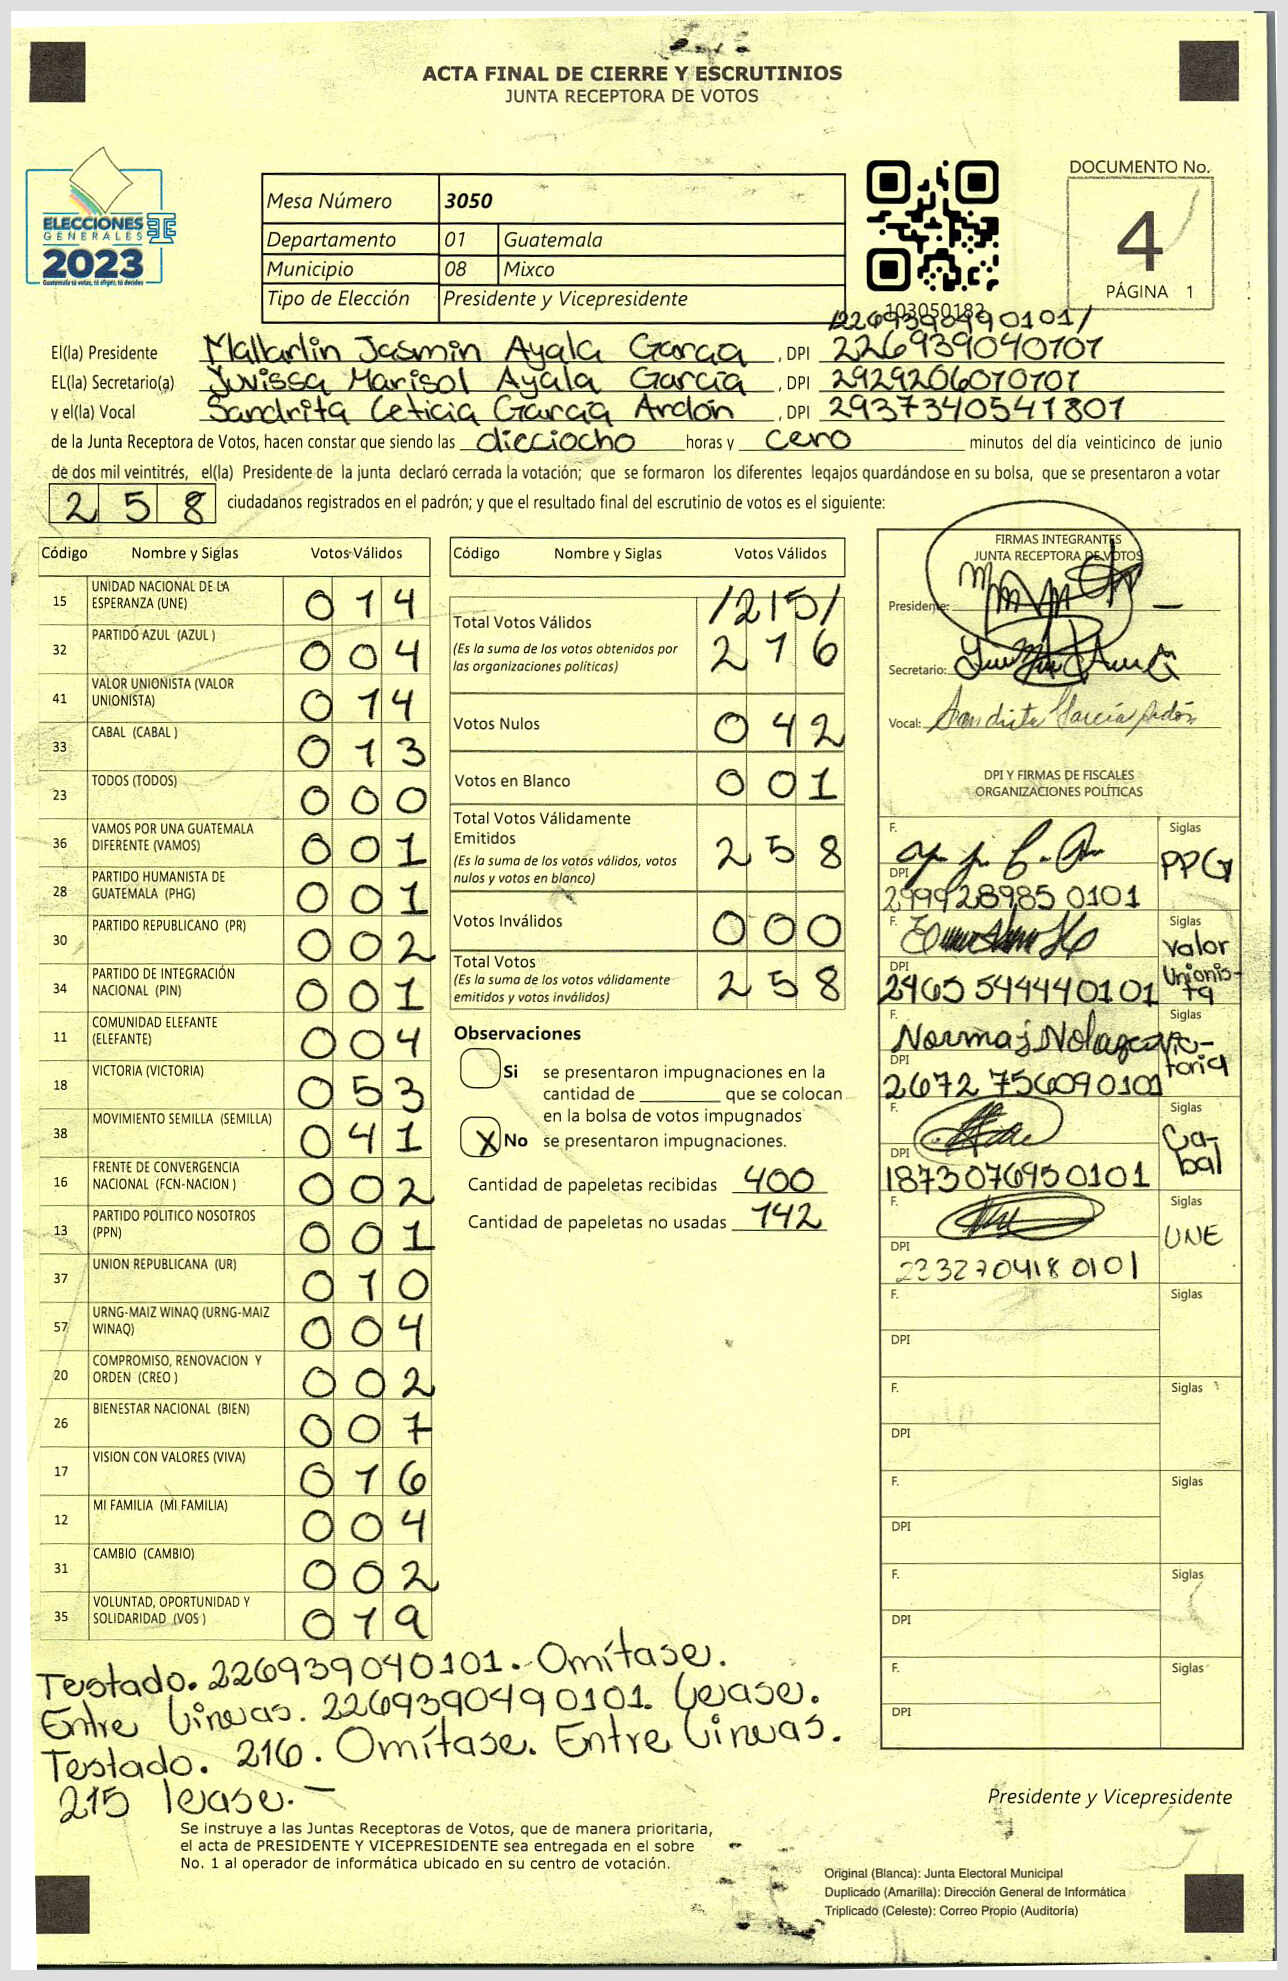 ACTA FINAL DE CIERRE Y ESCRUTINIOS
JUNTA RECEPTORA DE VOTOS
ELECCIONES
GENERALES
2023
Guatemala tú votas, tú eliges, tú decides
Mesa Número 3050
Departamento 01 Guatemala
Municipio 08 Mixco
Tipo de Elección Presidente y Vicepresidente
103050182
DOCUMENTO No.
4
PÁGINA 1
2269390490101/
El(la) Presidente Mallarlin Jasmin Ayala Garcia , DPI 226939040101
EL(la) Secretario(a) Juvissa Marisol Ayala García , DPI 2929206070101
y el(la) Vocal Sandrita Leticia García Ardón , DPI 2937340541801
de la Junta Receptora de Votos, hacen constar que siendo las dieciocho horas y cero minutos del día veinticinco de junio
de dos mil veintitrés, el(la) Presidente de la junta declaró cerrada la votación; que se formaron los diferentes legajos guardándose en su bolsa, que se presentaron a votar
258 ciudadanos registrados en el padrón; y que el resultado final del escrutinio de votos es el siguiente:
Código Nombre y Siglas Votos Válidos
15 UNIDAD NACIONAL DE LA ESPERANZA (UNE) 014
32 PARTIDO AZUL (AZUL ) 004
41 VALOR UNIONISTA (VALOR UNIONISTA) 014
33 CABAL (CABAL ) 013
23 TODOS (TODOS) 000
36 VAMOS POR UNA GUATEMALA DIFERENTE (VAMOS) 001
28 PARTIDO HUMANISTA DE GUATEMALA (PHG) 001
30 PARTIDO REPUBLICANO (PR) 002
34 PARTIDO DE INTEGRACIÓN NACIONAL (PIN) 001
11 COMUNIDAD ELEFANTE (ELEFANTE) 004
18 VICTORIA (VICTORIA) 053
38 MOVIMIENTO SEMILLA (SEMILLA) 041
16 FRENTE DE CONVERGENCIA NACIONAL (FCN-NACION ) 002
13 PARTIDO POLITICO NOSOTROS (PPN) 001
37 UNION REPUBLICANA (UR) 010
57 URNG-MAIZ WINAQ (URNG-MAIZ WINAQ) 004
20 COMPROMISO, RENOVACION Y ORDEN (CREO ) 002
26 BIENESTAR NACIONAL (BIEN) 007
17 VISION CON VALORES (VIVA) 016
12 MI FAMILIA (MI FAMILIA) 004
31 CAMBIO (CAMBIO) 002
35 VOLUNTAD, OPORTUNIDAD Y SOLIDARIDAD (VOS ) 019
Código Nombre y Siglas Votos Válidos
/215/
Total Votos Válidos 216
(Es la suma de los votos obtenidos por
las organizaciones políticas)
Votos Nulos 042
Votos en Blanco 001
Total Votos Válidamente
Emitidos 258
(Es la suma de los votos válidos, votos
nulos y votos en blanco)
Votos Inválidos 000
Total Votos 258
(Es la suma de los votos válidamente
emitidos y votos inválidos)
Observaciones
Si se presentaron impugnaciones en la
cantidad de ________ que se colocan
en la bolsa de votos impugnados
X No se presentaron impugnaciones.
Cantidad de papeletas recibidas 400
Cantidad de papeletas no usadas 142
FIRMAS INTEGRANTES
JUNTA RECEPTORA DE VOTOS
Presidente:
Secretario:
Vocal: Sandrita García Ardón
DPI Y FIRMAS DE FISCALES
ORGANIZACIONES POLÍTICAS
F. Siglas PPG
DPI 2999289850101
F. Siglas Valor Unionis-ta
DPI 2465544440101
F. Norma j Nolazco Siglas Vic-toria
DPI 2672756090101
F. Siglas Ca-bal
DPI 1873076950101
F. Siglas UNE
DPI 2332704180101
F. Siglas
DPI
F. Siglas
DPI
F. Siglas
DPI
F. Siglas
DPI
F. Siglas
DPI
Testado. 226939040101. Omítase.
Entre lineas. 2269390490101. lease.
Testado. 216. Omítase. Entre lineas.
215 lease.-
Presidente y Vicepresidente
Se instruye a las Juntas Receptoras de Votos, que de manera prioritaria,
el acta de PRESIDENTE Y VICEPRESIDENTE sea entregada en el sobre
No. 1 al operador de informática ubicado en su centro de votación.
Original (Blanca): Junta Electoral Municipal
Duplicado (Amarilla): Dirección General de Informática
Triplicado (Celeste): Correo Propio (Auditoría)